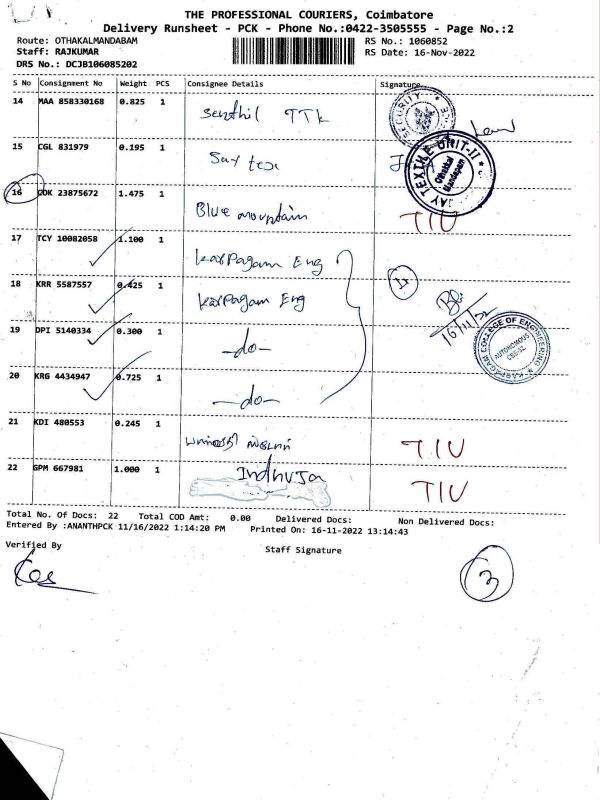 THE PROFESSIONAL COURIERS, Coimbatore
Delivery Runsheet - PCK - Phone No.:0422-3505555 - Page No.:2
Route: OTHAKALMANDABAM RS No.: 1060852
Staff: RAJKUMAR RS Date: 16-Nov-2022
DRS No.: DCJB106085202
S No Consignment No Weight PCS Consignee Details Signature
14 MAA 858330168 0.825 1 Senthil TTK
SECURITY
15 CGL 831979 0.195 1 Say tex
JAY TEXTILE UNIT-II Othakkal Mandapam
16 COK 23875672 1.475 1 Blue mountain TIU
17 TCY 10082058 1.100 1 karpagam Eng
18 KRR 5587557 0.425 1 karpagam Eng 4
16/11/22
19 DPI 5140334 0.300 1 -do-
KARPAGAM COLLEGE OF ENGINEERING AUTONOMOUS CBE-32
20 KRG 4434947 0.725 1 -do-
21 KDI 480553 0.245 1 TIU
22 GPM 667981 1.000 1 Indhuja TIU
Total No. Of Docs: 22 Total COD Amt: 0.00 Delivered Docs: Non Delivered Docs:
Entered By :ANANTHPCK 11/16/2022 1:14:20 PM Printed On: 16-11-2022 13:14:43
Verified By Staff Signature
3